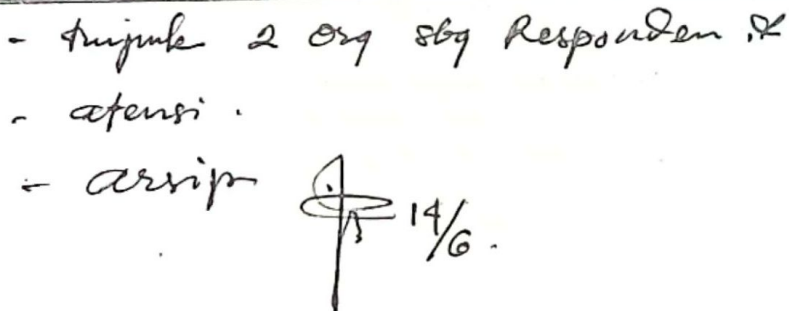 - tunjuk 2 org sbg Responden
- atensi.
- arsip
14/6.